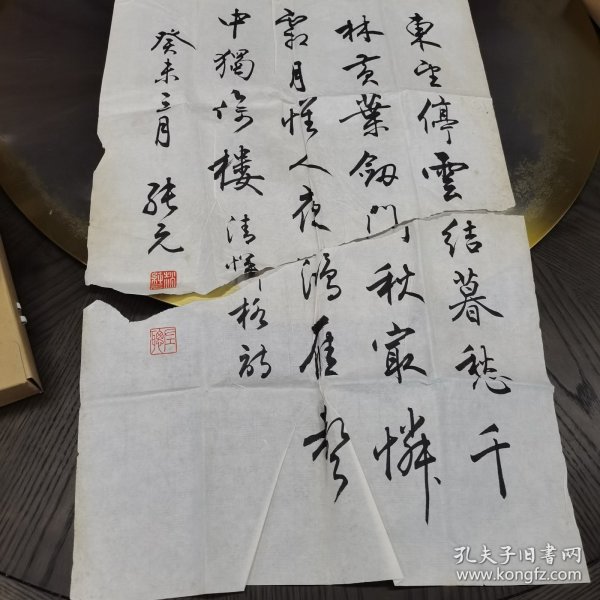 東望停雲結暮愁千
林黄葉劔門秋最憐
霜月懷人夜鴻雁聲
中獨倚楼 清惲格詩
癸未三月 張元
孔夫子旧書网
www.kongfz.com